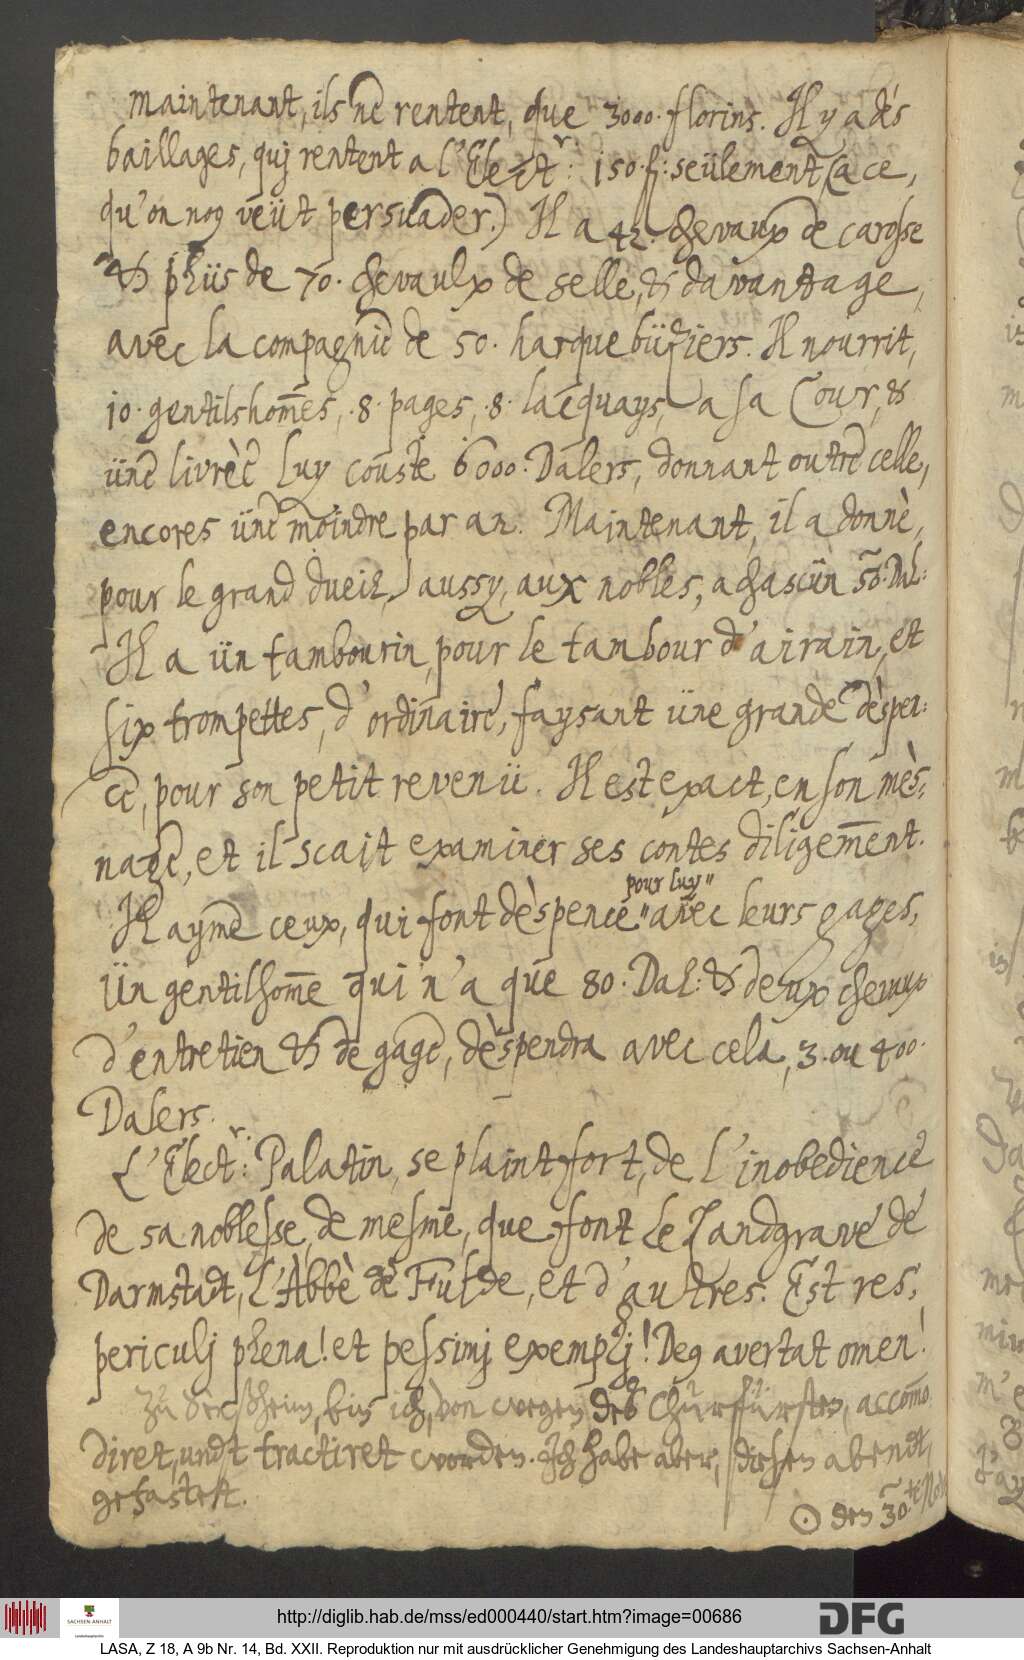 maintenant, ils ne rentent, que 3000. florins. Il y a dès
baillages, quj rentent a l'Elect.r: 150. f: seülement (a ce,
qu'on nous veüt persuader.) Il a 42. chevaux de carosse
& plüs de 70. chevaulx de selle, & davantage,
avec la compagnie de 50. harquebüziers. Il nourrit,
10. gentilshom̃es, 8. pages, 8. lacquays, a sa Cour, &
üne livrèe luy couste 6000. Dalers, donnant outre celle,
encores üne moindre par an. Maintenant, il a donnè,
pour le grand dueil, aussy, aux nobles, a chascün 50. Dal:
Il a ün tambourin, pour le tambour d'airain, et
six trompettes, d'ordinaire, faysant üne grande dèspen:
ce, pour son petit revenü. Il est exact, en son mès:
nage, et il scait examiner ses contes diligem̃ent.
Il ayme ceux, qui font dèspence "pour luy" avec leurs gages,
Ün gentilhom̃e qui n'a que 80. Dal: & deux chevaux
d'entretien & de gage, dèspendra avec cela, 3. ou 400.
Dalers.
L'Elect.r: Palatin, se plaint fort, de l'inobedience
de sa noblesse, de mesme, que font le Landgrave de
Darmstadt, l'Abbè de Fulde, et d'autres. Est res,
periculj plena! et pessimj exemplj! Deus avertat omen!
Zu Gerßheim, bin ich, von wegen des Churfürsten, accom̃o
diret, undt tractiret worden. Ich habe aber, diesen abendt,
gefastett.
☉ den 30.ten
http://diglib.hab.de/mss/ed000440/start.htm?image=00686
DFG
SACHSEN-ANHALT
Landeshauptarchiv
LASA, Z 18, A 9b Nr. 14, Bd. XXII. Reproduktion nur mit ausdrücklicher Genehmigung des Landeshauptarchivs Sachsen-Anhalt